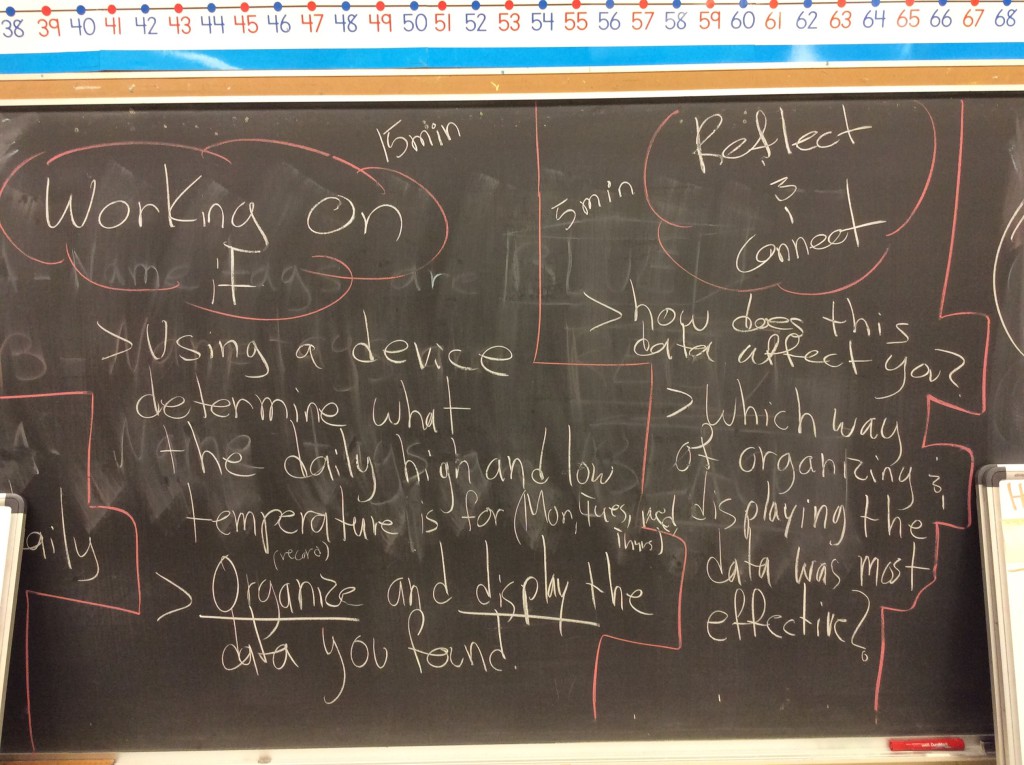 38 39 40 41 42 43 44 45 46 47 48 49 50 51 52 53 54 55 56 57 58 59 60 61 62 63 64 65 66 67 68
15min
Working On
it
>Using a device
determine what
the daily high and low
temperature is for (Mon, Tues, wed
thurs)
(record)
> Organize and display the
data you found.
aily
5min
Reflect
&
connect
>how does this
data affect you?
>which way
of organizing &
displaying the
data was most
effective?
A - Name tags are
B -
H